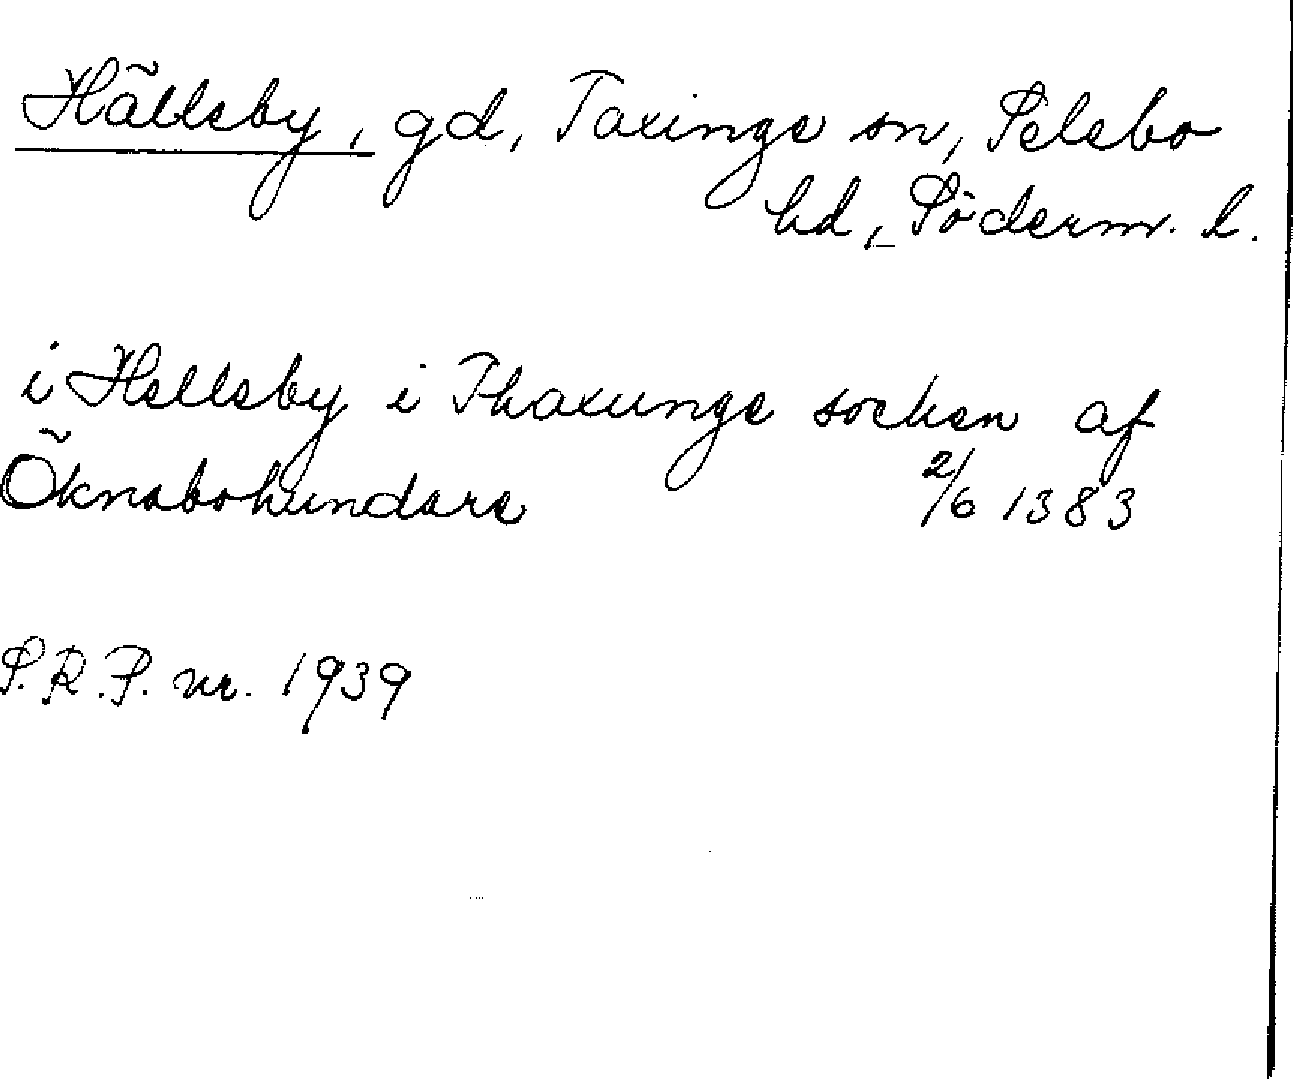 Hällsby, gd, Taxinge sn, Selebo
hd, Söderm. l.
i Hellsby i Thaxunge socken af
Öknabohundare 2/6 1383
S.R.P. nr. 1939